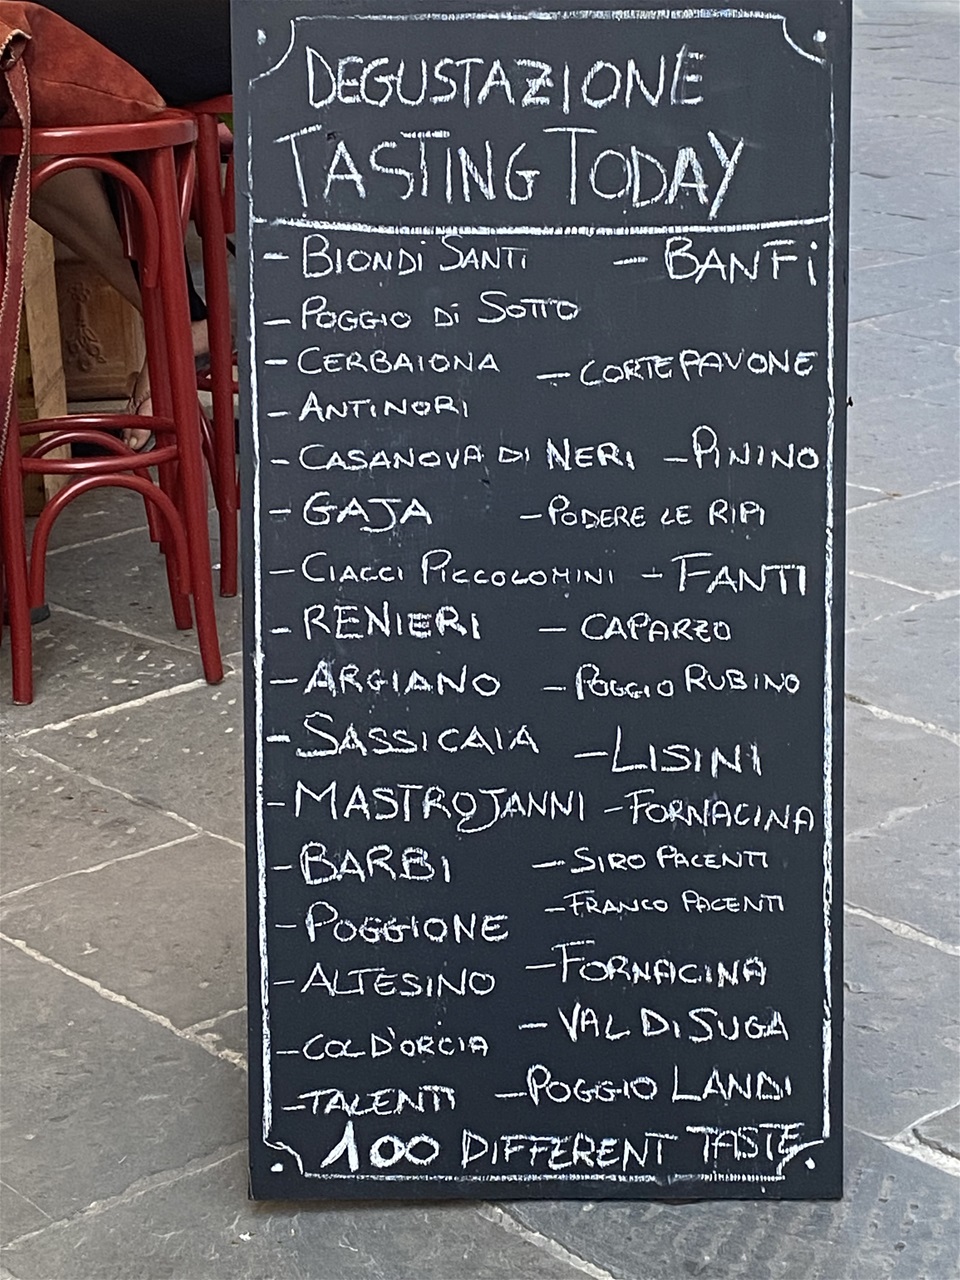 DEGUSTAZIONE
TASTING TODAY
- BIONDI SANTI - BANFI
- POGGIO DI SOTTO
- CERBAIONA - CORTE PAVONE
- ANTINORI
- CASANOVA DI NERI - PININO
- GAJA - PODERE LE RIPI
- CIACCI PICCOLOMINI - FANTI
- RENIERI - CAPARZO
- ARGIANO - POGGIO RUBINO
- SASSICAIA - LISINI
- MASTROJANNI - FORNACINA
- BARBI - SIRO PACENTI
- FRANCO PACENTI
- POGGIONE
- ALTESINO - FORNACINA
- COL D'ORCIA - VAL DI SUGA
- TALENTI - POGGIO LANDI
100 DIFFERENT TASTE